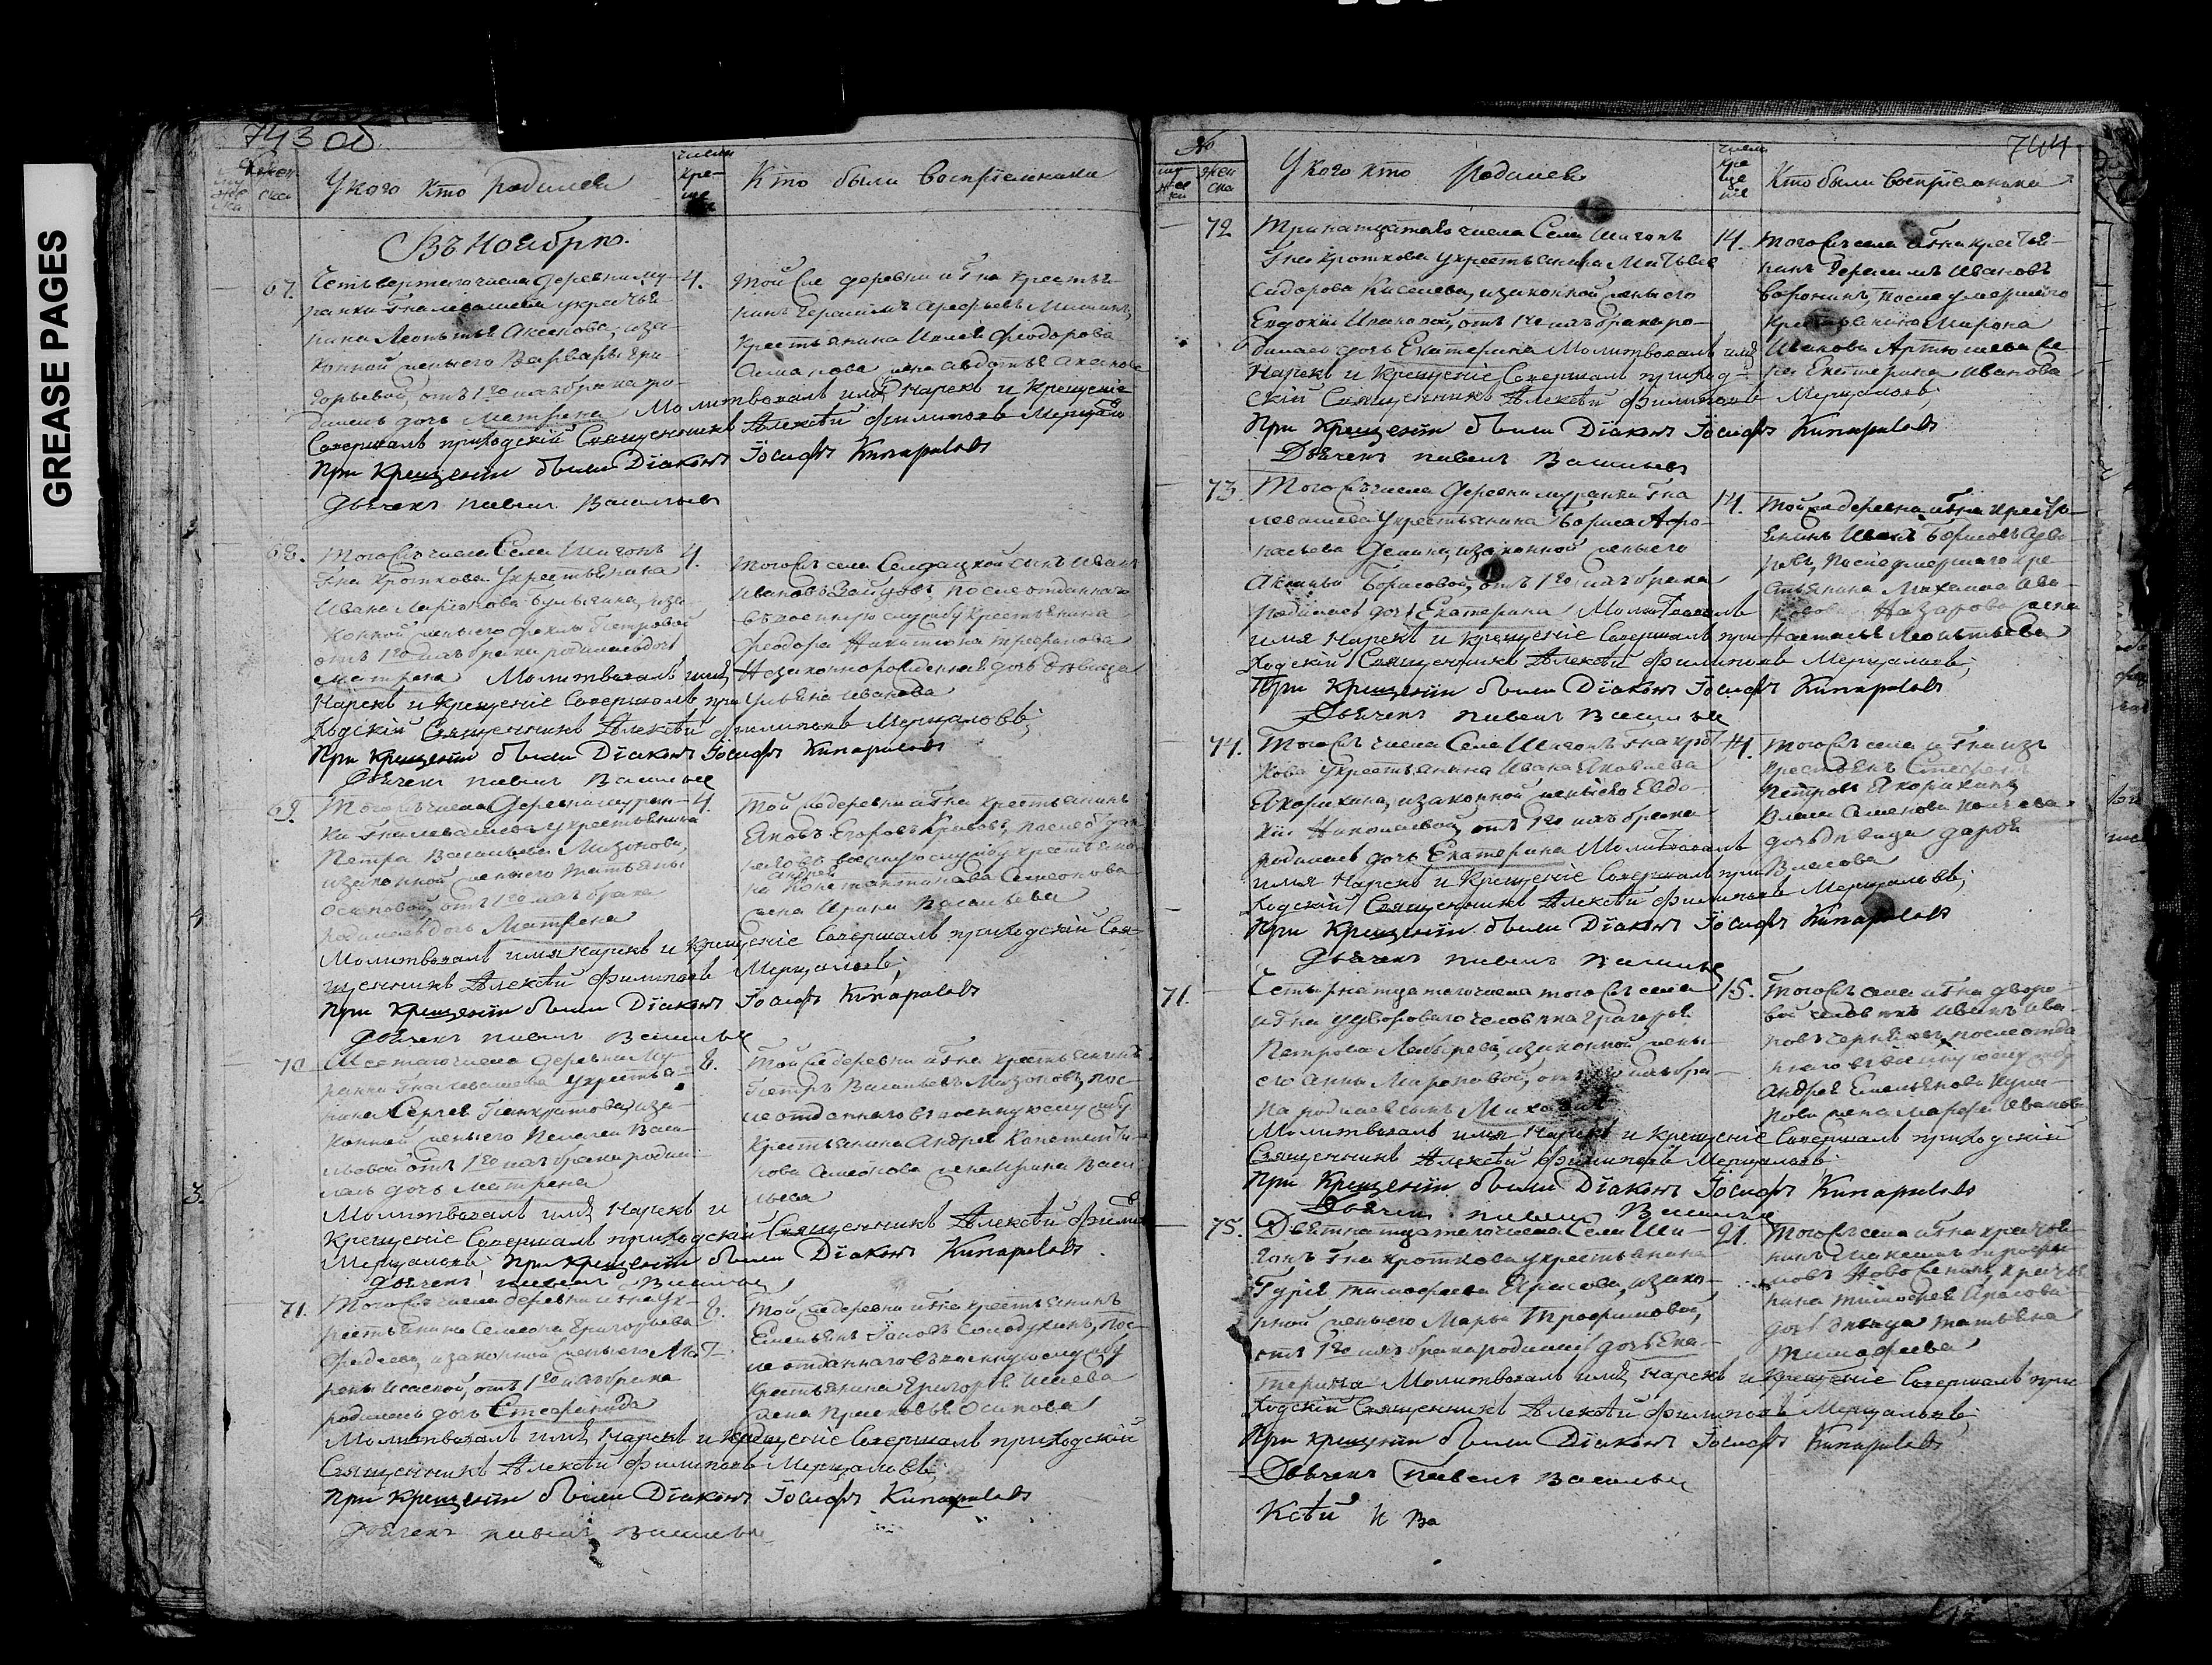 GREASE PAGES
743 об
У кого кто родился
числа кре-ще-ния
Кто были восприемники
Въ Ноябрѣ.
67. Четьвертаго числа деревни Му- 4.
ранки Гна Левашева у крестья-
нина Леонтья Аксенова, иза-
конной жены его Варвары Гри-
горьевой, отъ 1го ихъ брака ро-
дилась дочь Матрена Молитвовалъ имя Нарекъ и Крещение
Совершалъ приходскій Священникъ Алексѣй Филиповъ Мерцаловъ
При Крещеніи были Діаконъ Іосифъ Кипарисовъ
Дьячекъ Павелъ Васильевъ
Той же деревни и Гна крестья-
нинъ Герасимъ Арефьевъ
Крестьянина Феодорова
жена Авдотья
68. Того же числа Села Шигонъ 4.
Гна Кроткова у крестьянина
Ивана иза-
конной жены его Феклы Петровой
отъ 1го ихъ брака родилась дочь
Матрена Молитвовалъ имя
Нарекъ и Крещеніе Совершалъ при
ходскій Священникъ Алексѣй Филиповъ Мерцаловъ;
При Крещеніи были Діаконъ Іосифъ Кипарисовъ
Дьячекъ Павелъ Васильевъ
Того же села Солдацкой сынъ Иванъ
Ивановъ Зайцовъ, после отданнаго
въ военную службу крестьянина
Феодора Никитина
Незаконнорожденная дочь девица
Ульяна Иванова
69. Того же числа Деревни Муран- 4.
ки Гна Левашева у крестьянина
Петра Васильева Мизонова,
изаконной жены его Татьяны
Осиповой, отъ 1го ихъ брака
родилась дочь Матрена
Молитвовалъ имя Нарекъ и Крещеніе Совершалъ приходскій Свя-
щенникъ Алексѣй Филиповъ Мерцаловъ;
При Крещеніи были Діаконъ Іосифъ Кипарисовъ
Дьячекъ Павелъ Васильевъ
Той же деревни и Гна крестьянинъ
Яковъ Егоровъ
въ военную службу крестьяни-
на Андрея Константинова Семионова
жена Ирина Васильева
70. Шестаго числа деревни Му- 8.
ранки Гна Левашева у крестья-
нина Сергея Панкратова, иза-
конной жены его Пелагеи Васи-
льевой отъ 1го ихъ брака роди-
лась дочь Матрена
Молитвовалъ имя Нарекъ и
Крещеніе Совершалъ приходскій Священникъ Алексѣй Филиповъ
Мерцаловъ При Крещеніи были Діаконъ Кипарисовъ
Дьячекъ Павелъ Васильевъ
Той же деревни и Гна крестьянинъ
Петръ Васильевъ Мизоновъ, пос-
ле отданнаго въ военную службу
Крестьянина Андрея Константи-
нова Семионова жена Ирина Васи-
льева
71. Того же числа деревни и Гна у к- 8.
рестьянина Семиона Григорьева
Фадеева, изаконной жены его Мат-
рены Исаевой, отъ 1го ихъ брака
родилась дочь Стефанида
Молитвовалъ имя Нарекъ и Крещеніе Совершалъ приходскій
Священникъ Алексѣй Филиповъ Мерцаловъ;
При Крещеніи были Діаконъ Іосифъ Кипарисовъ
Дьячекъ Павелъ Васильевъ
Той же деревни и Гна крестьянинъ
Емельянъ Солодухинъ, пос-
ле отданнаго въ военную службу
Крестьянина Григорья Исаева
жена Прасковья Осипова
744
№
У кого кто Родился
числа кре-ще-ния
Кто были восприемники
72. Тринатцатаго числа Села Шигонъ 14.
Гна Кроткова у крестьянина Матвея
Сидорова Киселева, изаконной жены его
Евдокии Ивановой, отъ 1го ихъ брака ро-
дилась дочь Екатерина Молитвовалъ имя
Нарекъ и Крещеніе Совершалъ приход-
скій Священникъ Алексѣй Филиповъ Мерцаловъ
При Крещеніи были Діаконъ Іосифъ Кипарисовъ
Дьячекъ Павелъ Васильевъ
Того же села и Гна крестья-
нинъ Герасимъ Ивановъ
Воронинъ, после умершаго
Крестьянина Мирона
Иванова Артюшева
Екатерина Иванова
73. Того же числа Деревни Муранки Гна 14.
Левашева у крестьянина Бориса Афо-
насьева Демина, изаконной жены его
Акулины Борисовой, отъ 1го ихъ брака
родилась дочь Екатерина Молитвовалъ
имя Нарекъ и Крещеніе Совершалъ при
ходскій Священникъ Алексѣй Филиповъ Мерцаловъ;
При Крещеніи были Діаконъ Іосифъ Кипарисовъ
Дьячекъ Павелъ Васильевъ
Той же деревни и Гна кресть-
янинъ Иванъ Борисовъ
после умершаго кре-
стьянина Михаила
Назарова жена
Наталья Леонтьева
74. Того же числа Села Шигонъ Гна Крот 14.
кова у крестьянина Ивана Яковлева
Якорихина, изаконной жены его Евдо-
кии Николаевой, отъ 1го ихъ брака
родилась дочь Екатерина Молитвовалъ
имя Нарекъ и Крещеніе Совершалъ при
ходскій Священникъ Алексѣй Филиповъ Мерцаловъ;
При Крещеніи были Діаконъ Іосифъ Кипарисовъ
Дьячекъ Павелъ Васильевъ
Того же села и Гна изъ
крестьянъ Стефанъ
Петровъ Якорихинъ
Власа Семенова
дочь девица Дарья
Власова
71. Четырнатцатаго числа того же села 15.
и Гна у двороваго человека Григорья
Петрова изаконной жены
его Анны Мироновой, отъ 1го ихъ бра-
ка родился сынъ Михаилъ
Молитвовалъ имя Нарекъ и Крещеніе Совершалъ приходскій
Священникъ Алексѣй Филиповъ Мерцаловъ
При Крещеніи были Діаконъ Іосифъ Кипарисовъ
Дьячекъ Павелъ Васильевъ
Того же села и Гна дворо-
вой человекъ Иванъ Ива-
новъ после отда-
ннаго въ военную службу
Андрея Емельянова
жена Марфа Иванова
75. Девятнатцатаго числа Села Ши- 21.
гонъ Гна Кроткова у крестьянина
Гурья Тимофеева изако-
нной жены его Марьи Трофимовой,
отъ 1го ихъ брака родилась дочь Ека-
терина Молитвовалъ имя Нарекъ и Крещеніе Совершалъ при
ходскій Священникъ Алексѣй Филиповъ Мерцаловъ;
При Крещеніи были Діаконъ Іосифъ Кипарисовъ
Дьячекъ Павелъ Васильевъ
Того же села и Гна крестья-
нинъ Максимъ
крестья-
нина Тимофея
дочь девица Татьяна
Тимофеева
Ксѣй И Ва